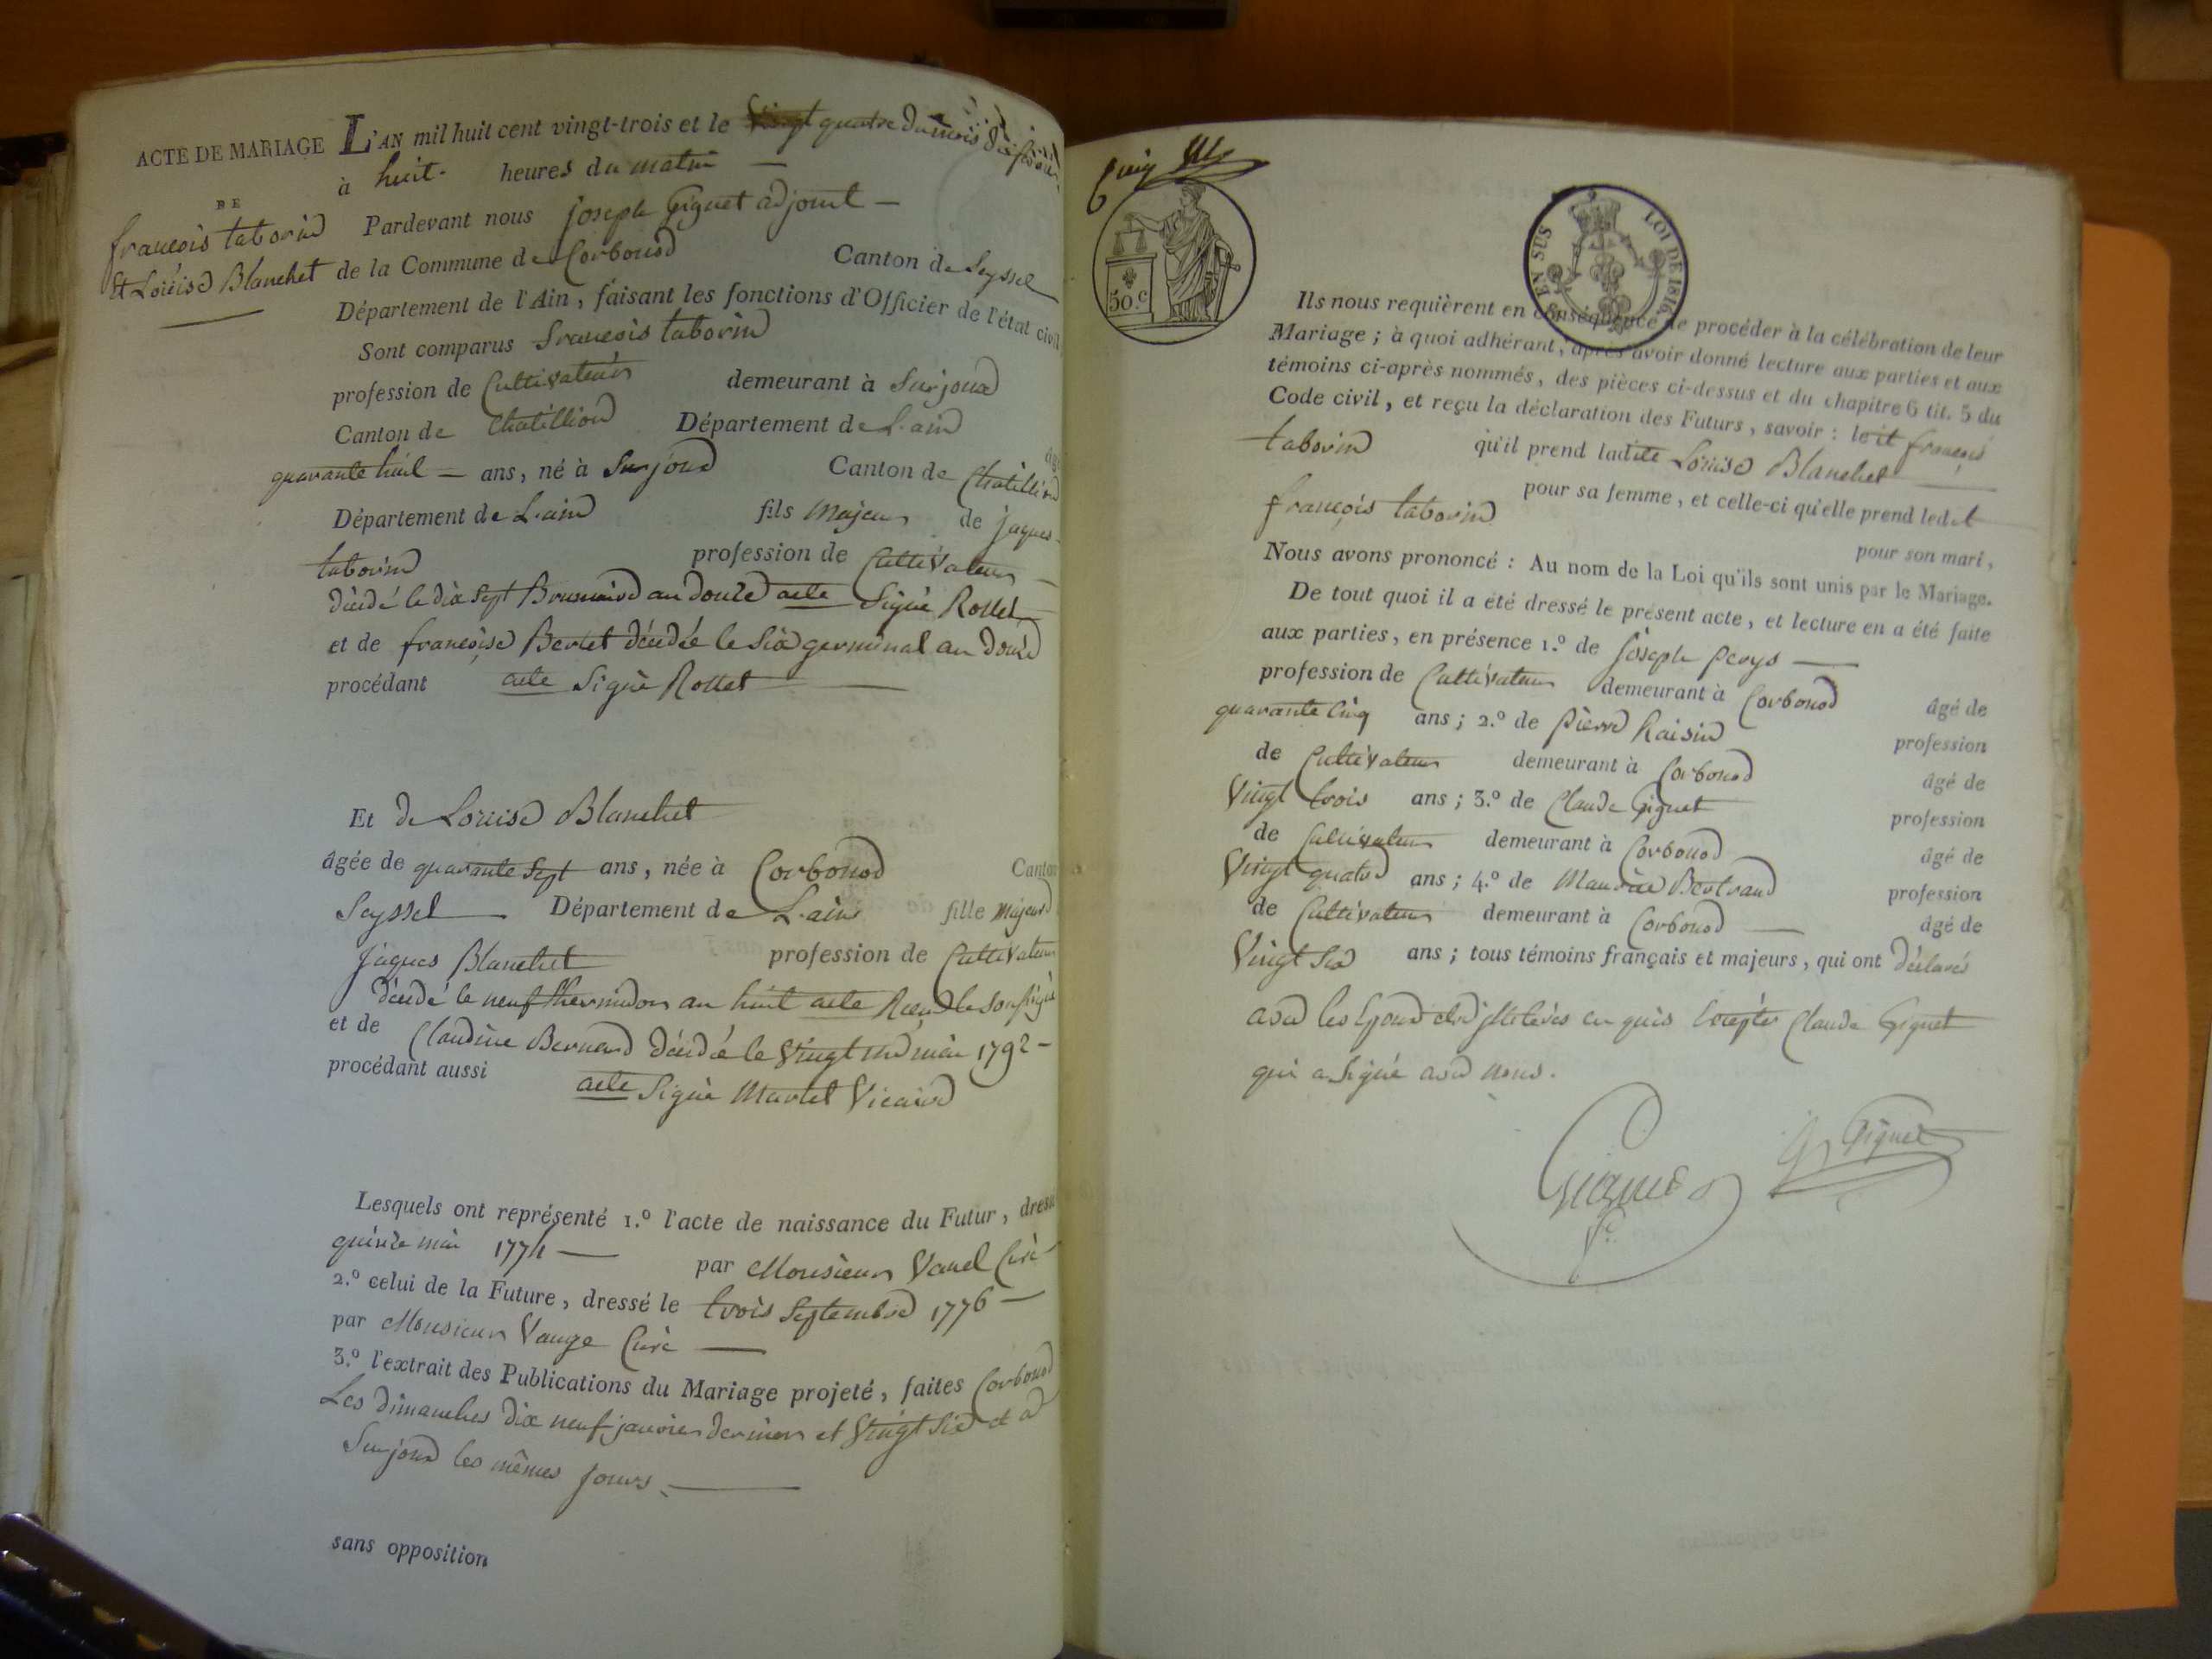 ACTE DE MARIAGE
DE
francois taborin
Et Louise Blanchet
L'AN mil huit cent vingt-trois et le Vingt quatre du mois de
à huit heures du matin
Pardevant nous joseph Giguet adjoint
de la Commune de Corbonod Canton de Seyssel
Département de l'Ain, faisant les fonctions d'Officier de l'état civil
Sont comparus francois taborin
profession de Cultivateur demeurant à Surjoux
Canton de Chatillion Département de L'ain âgé
quarante huit ans, né à Surjoux Canton de Chatillion
Département de L'ain fils Majeur de jaques
taborin profession de Cultivateur
décédé le dix sept Brumaire an douze acte Signé Rollet
et de francoise Bertet décédée le Six germinal an douze
procédant acte Signé Rollet
Et de Louise Blanchet
âgée de quarante Sept ans, née à Corbonod Canton
Seyssel Département de L'ain fille Majeure
jaques Blanchet profession de Cultivateur
décédé le neuf thermidor an huit acte
et de Claudine Bernard décédé le Vingt un mai 1792
procédant aussi acte Signé Martel Vicaire
Lesquels ont représenté 1.º l'acte de naissance du Futur, dressé
quinze mai 1774 par Monsieur Vanel Curé
2.º celui de la Future, dressé le trois Septembre 1776
par Monsieur Vauge Curé
3.º l'extrait des Publications du Mariage projeté, faites Corbonod
Les dimanches dix neuf janvier dernier et Vingt Six et a
Surjoux les mêmes jours
sans opposition
50.c
EN SUS LOI DE 1816
Ils nous requièrent en conséquence de procéder à la célébration de leur
Mariage; à quoi adhérant, après avoir donné lecture aux parties et aux
témoins ci-après nommés, des pièces ci-dessus et du chapitre 6 tit. 5 du
Code civil, et reçu la déclaration des Futurs, savoir: ledit françois
taborin qu'il prend ladite Louise Blanchet
pour sa femme, et celle-ci qu'elle prend ledit
françois taborin pour son mari,
Nous avons prononcé: Au nom de la Loi qu'ils sont unis par le Mariage.
De tout quoi il a été dressé le présent acte, et lecture en a été faite
aux parties, en présence 1.º de joseph perys
profession de Cultivateur demeurant à Corbonod âgé de
quarante Cinq ans; 2.º de pierre Raisin profession
de Cultivateur demeurant à Corbonod âgé de
Vingt trois ans; 3.º de Claude Giguet profession
de Cultivateur demeurant à Corbonod âgé de
Vingt quatre ans; 4.º de Maurice Bertrand profession
de Cultivateur demeurant à Corbonod âgé de
Vingt Six ans; tous témoins français et majeurs, qui ont déclarés
avec les Epoux etre illeteres en quis Excepter Claude Giguet
qui a Signé avec nous.
Giguet
Giguet